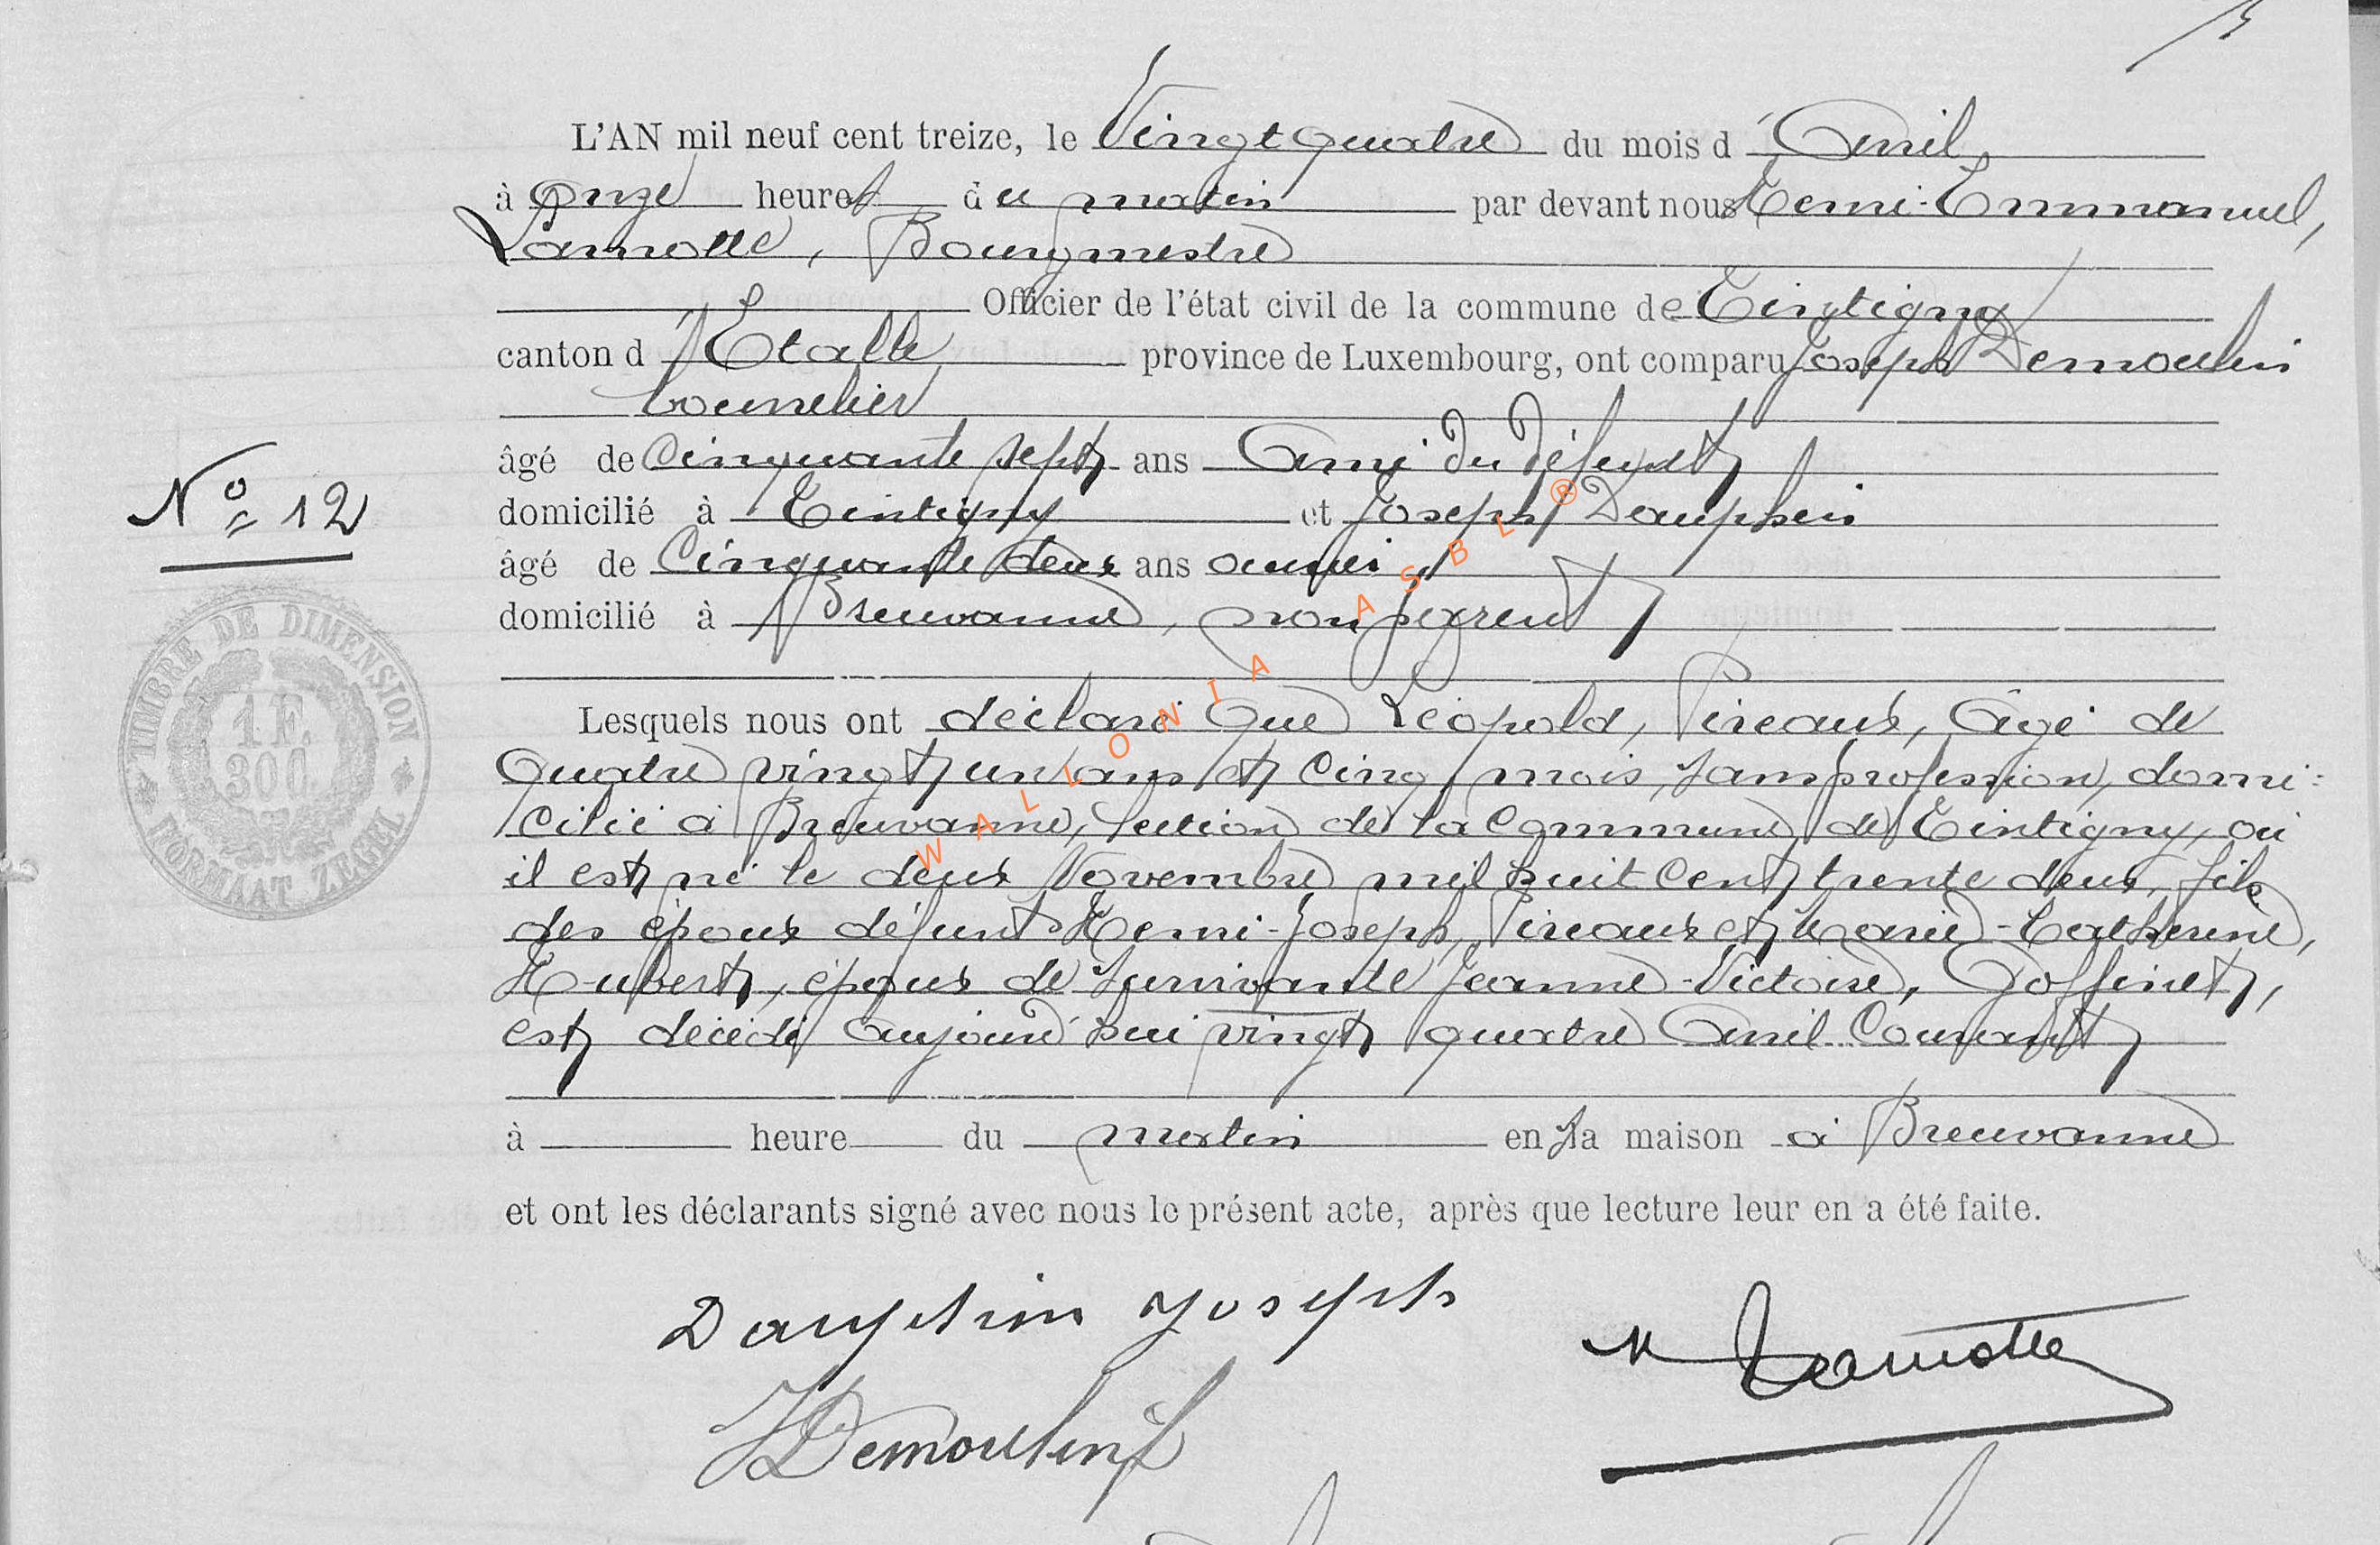 L'AN mil neuf cent treize, le Vingt quatre du mois d'Avril
à onze heures du matin par devant nous Henri-Emmanuel,
Lamotte, Bourgmestre
Officier de l'état civil de la commune de Tintigny
canton d'Etalle province de Luxembourg, ont comparu Joseph Demoulin
tonnelier
âgé de Cinquante sept ans Ami du défunt
domicilié à Tintigny et Joseph Dauphin
N° 12
âgé de Cinquante deux ans aussi
domicilié à Breuvanne, non parent
TIMBRE DE DIMENSION
1 F.
30 C.
FORMAAT ZEGEL
Lesquels nous ont déclaré que Léopold, Pireaux, âgé de
quatre vingt un ans et cinq mois, sans profession, domi-
cilié à Breuvanne, section de la commune de Tintigny, où
il est né le deux Novembre mil huit cent trente deux, fils
des époux défunts Henri-Joseph, Pireaux et Marie-Catherine,
Hubert, époux de survivante Jeanne-Victoire, Goffinet,
est décédé aujourd'hui vingt quatre Avril courant
à heure du matin en sa maison à Breuvanne
et ont les déclarants signé avec nous le présent acte, après que lecture leur en a été faite.
Dauphin Joseph
Lamotte
J Demoulin
WALLONIA ASBL ®